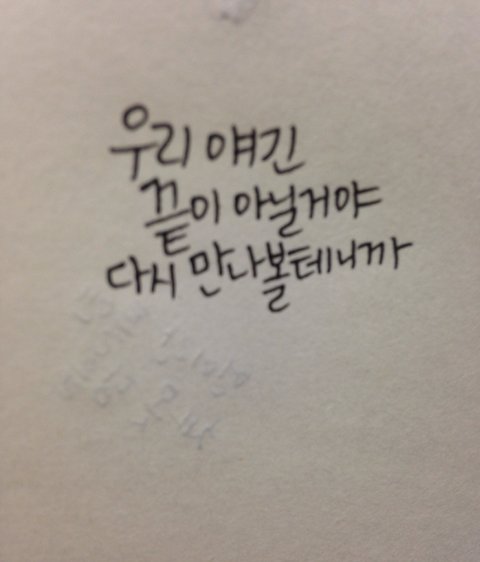 우리 얘긴
끝이 아닐거야
다시 만나볼테니까